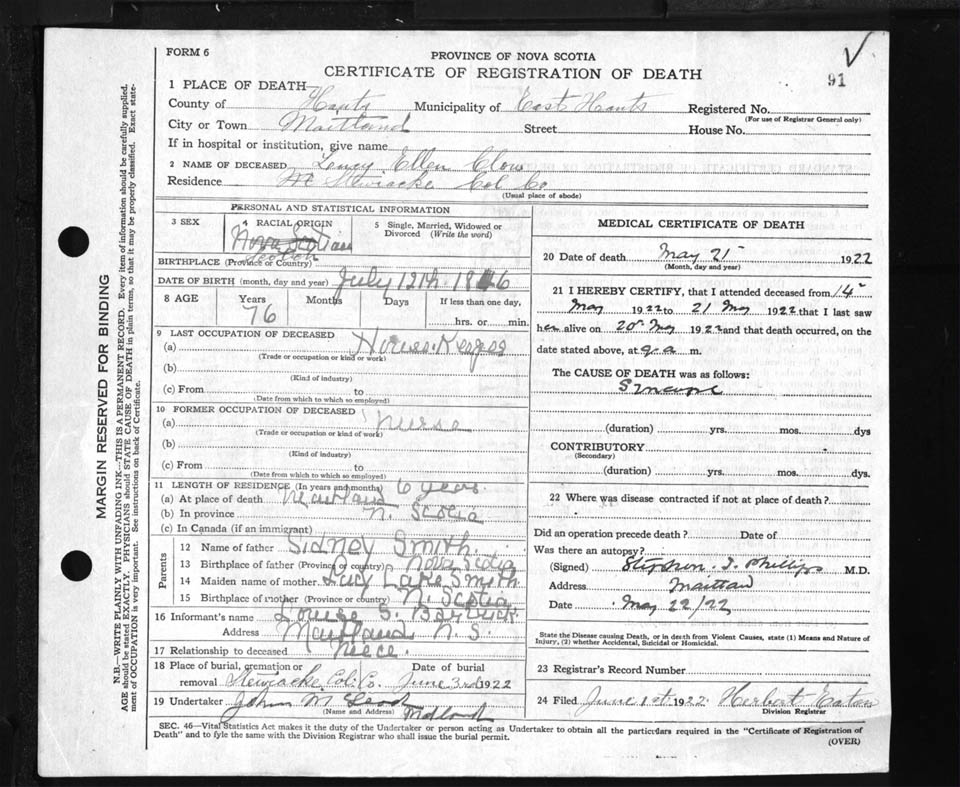 FORM 6
PROVINCE OF NOVA SCOTIA
CERTIFICATE OF REGISTRATION OF DEATH
91
1 PLACE OF DEATH
County of Hants Municipality of East Hants Registered No.
(For use of Registrar General only)
City or Town Maitland Street House No.
If in hospital or institution, give name
2 NAME OF DECEASED Ellen
Residence Stewiacke Col Co
(Usual place of abode)
PERSONAL AND STATISTICAL INFORMATION
3 SEX
4 RACIAL ORIGIN
Nova Scotian
5 Single, Married, Widowed or Divorced (Write the word)
BIRTHPLACE (Province or Country)
DATE OF BIRTH (month, day and year) July 12th 1846
8 AGE Years Months Days If less than one day,
76 hrs. or min.
9 LAST OCCUPATION OF DECEASED
(a)
(Trade or occupation or kind of work)
(b)
(Kind of industry)
(c) From to
(Date from which to which so employed)
10 FORMER OCCUPATION OF DECEASED
(a) Nurse
(Trade or occupation or kind of work)
(b)
(Kind of industry)
(c) From to
(Date from which to which so employed)
11 LENGTH OF RESIDENCE (In years and months)
(a) At place of death Maitland 6 years
(b) In province N. Scotia
(c) In Canada (if an immigrant)
Parents
12 Name of father Sidney Smith
13 Birthplace of father (Province or country) Nova Scotia
14 Maiden name of mother Lucy Lake Smith
15 Birthplace of mother (Province or country) N. Scotia
16 Informant's name Louise S.
Address Maitland N. S.
17 Relationship to deceased Neece
18 Place of burial, cremation or removal Stewiacke Col. Co. Date of burial June 3rd 1922
19 Undertaker John M
(Name and Address)
MEDICAL CERTIFICATE OF DEATH
20 Date of death May 21 1922
(Month, day and year)
21 I HEREBY CERTIFY, that I attended deceased from 14
May 1922 to 21 May 1922 that I last saw
her alive on 20 May 1922 and that death occurred, on the
date stated above, at 9 a m.
The CAUSE OF DEATH was as follows:
Syncope
(duration) yrs. mos. dys
CONTRIBUTORY
(Secondary)
(duration) yrs. mos. dys.
22 Where was disease contracted if not at place of death?
Did an operation precede death? Date of
Was there an autopsy?
(Signed) Stephen Phillips M.D.
Address Maitland
Date May 22/22
State the Disease causing Death, or in death from Violent Causes, state (1) Means and Nature of Injury, (2) whether Accidental, Suicidal or Homicidal.
23 Registrar's Record Number
24 Filed June 1st 1922 Herbert Eaton
Division Registrar
SEC. 46—Vital Statistics Act makes it the duty of the Undertaker or person acting as Undertaker to obtain all the particulars required in the "Certificate of Registration of
Death" and to fyle the same with the Division Registrar who shall issue the burial permit.
(OVER)
MARGIN RESERVED FOR BINDING
N.B.—WRITE PLAINLY WITH UNFADING INK—THIS IS A PERMANENT RECORD. Every item of information should be carefully supplied.
AGE should be stated EXACTLY. PHYSICIANS should STATE CAUSE OF DEATH in plain terms, so that it may be properly classified. Exact state-
ment of OCCUPATION is very important. See instructions on back of Certificate.